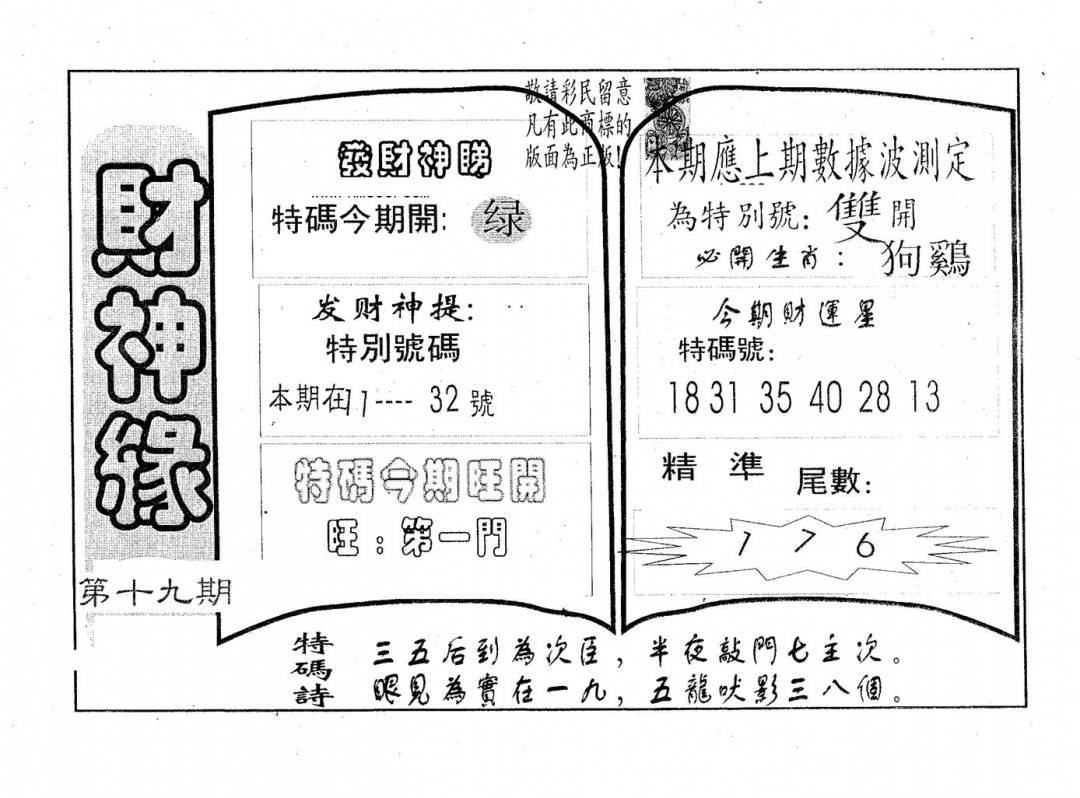 財神緣
第十九期
敬請彩民留意
凡有此商標的
版面為正版!
發財神睇
特碼今期開: 绿
发财神提:
特別號碼
本期在11----32號
特碼今期旺開
旺:第一門
本期應上期數據波測定
為特別號: 雙開
必開生肖: 狗鷄
今期財運星
特碼號:
18 31 35 40 28 13
精準 尾數:
1 7 6
特碼詩
三五后到為次臣,半夜敲門七主次。
眼見為實在一九,五龍吠影三八個。